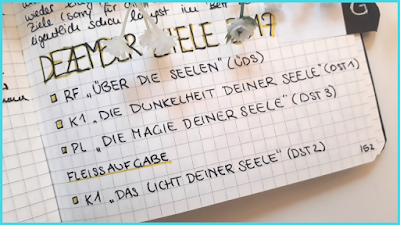 Ziele
eigentlich schon längst im Bett
DEZEMBER ZIELE 2017
RF „ÜBER DIE SEELEN" (ÜDS)
K1 „DIE DUNKELHEIT DEINER SEELE" (DST1)
PL „DIE MAGIE DEINER SEELE" (DST3)
FLEISSAUFGABE
K1 „DAS LICHT DEINER SEELE" (DST2)
152
G